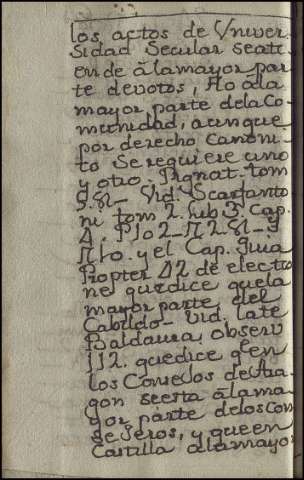 los actos de Vniver-
sidad Secular seati-
ende alamayor par
te devotos, Ho ala
mayor parte dela Co-
munidad, aunque
por derecho Canoni-
co Serequiere uno
y otro. Pignat. tom
9.81 - Vid. Scarfanto
ni tom 2. lib 3. Cap.
4. P102-N2.81-9
N10. y el Cap. Quia
Propter 42 de electio
ne quedice quela
mayor parte del
Cabildo - Vid. late
Baldaura, observ
112. quedice q en
los Consejos de Ara
gon seesta alama
yor parte delos Con
sejeros, y que en
Castilla alamayor